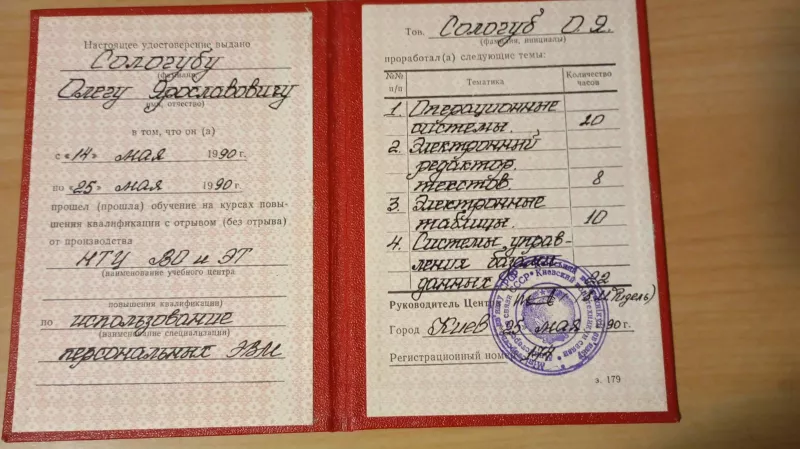 Настоящее удостоверение выдано
Сологубу
(фамилия,
Олегу Ярославовичу
имя, отчество)
в том, что он (а)
с «14» мая 1990 г.
по «25» мая 1990 г.
прошел (прошла) обучение на курсах повы-
шения квалификации с отрывом (без отрыва)
от производства
НТУ ВО и ЭТ
(наименование учебного центра
повышения квалификации)
по использование
(наименование специализации)
персональных ЭВМ
Тов. Сологуб О. Я.
(фамилия, инициалы)
проработал(а) следующие темы:
№№ п/п Тематика Количество часов
1. Операционные
системы. 20
2. Электронный
редактор
текстов. 8
3. Электронные
таблицы. 10
4. Системы управ-
ления базами
данных 22
Руководитель Центра
Город Киев «25» мая 1990 г.
Регистрационный номер 174
з. 179